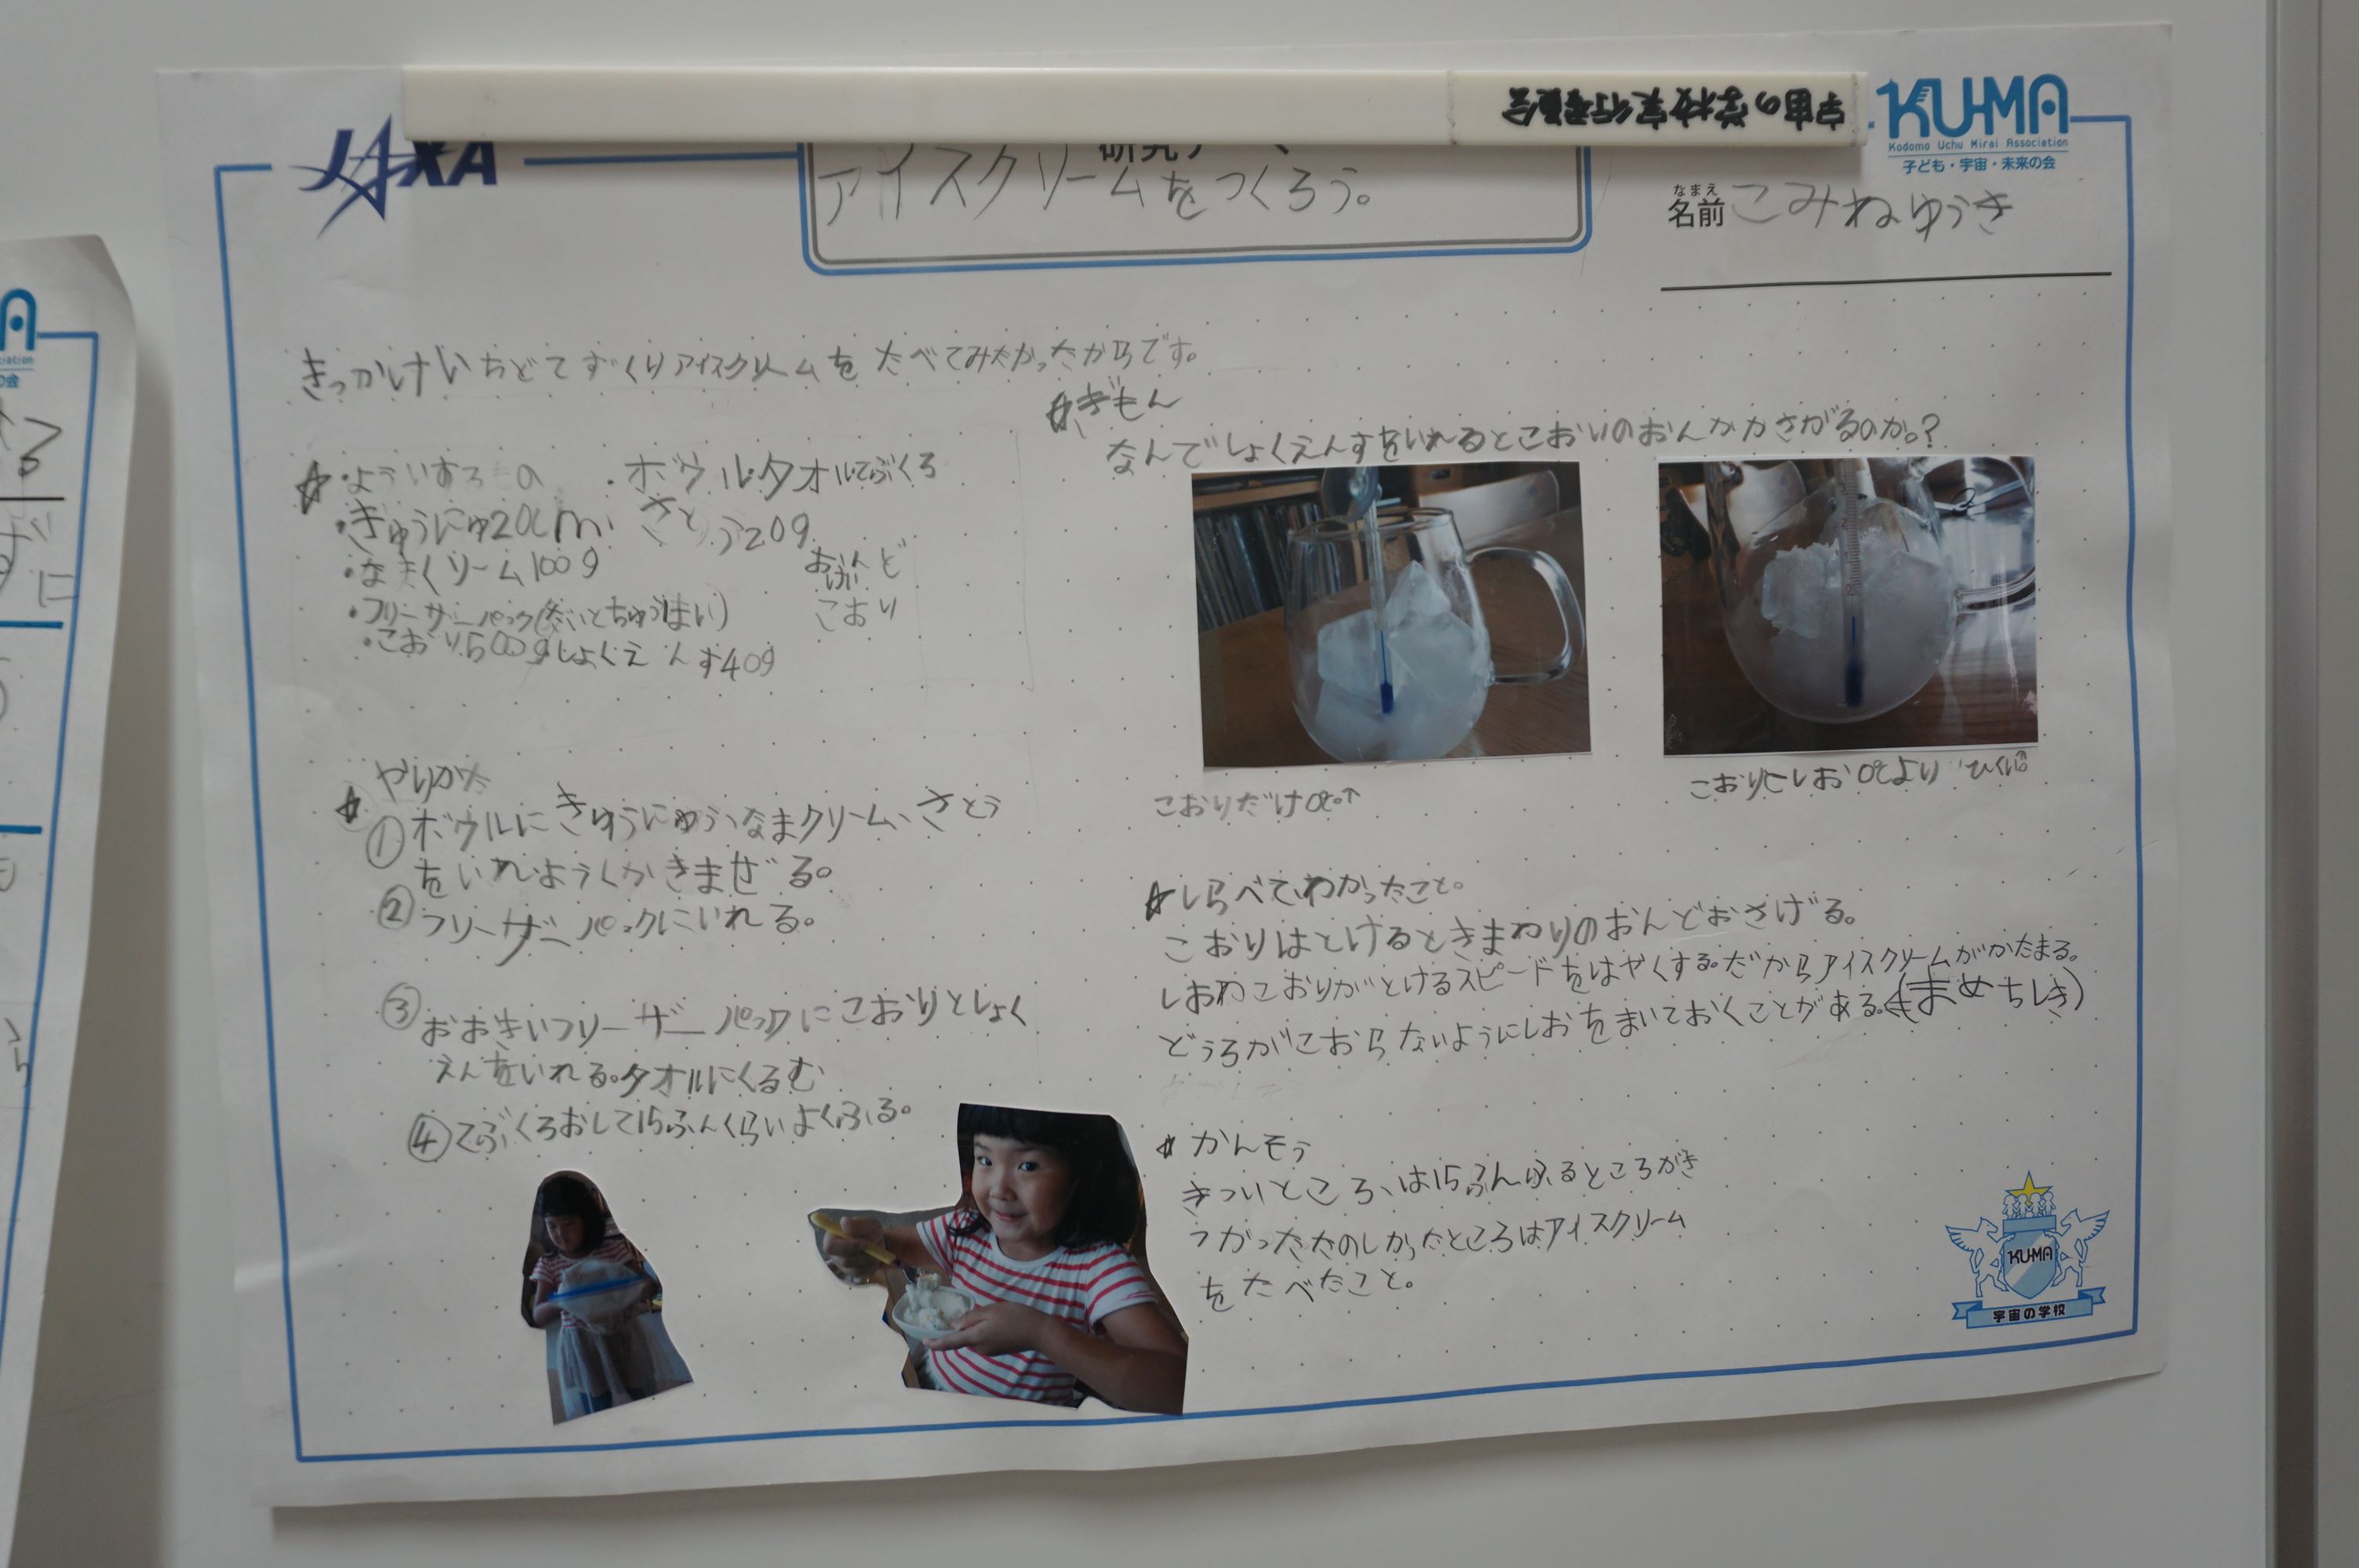 宇宙の学校実行委員会
JAXA
KU-MA
Kodomo Uchu Mirai Association
子ども・宇宙・未来の会
研究テーマ
アイスクリームをつくろう。
なまえ
名前 こみねゆうき
きっかけいちどてずくりアイスクリームをたべてみたかったからです。
☆・よういするもの ・ボウル・タオルてぶくろ
・きゅうにゅ200m さとう20g
・なまくリーム100g おんど
けい
・フリーザーパック(だいとちゅう1まい) こおり
・こおり500gしょくえんす40g
☆やりかた
①ボウルにきゅうにゅう、なまクリーム、さとう
をいれようくかきまぜる。
②フリーザーパックにいれる。
③おおきいフリーザーパックにこおりとしょく
えんをいれる。タオルにくるむ
④てぶくろおして15ふんくらいよくふる。
☆ぎもん
なんでしょくえんすをいれるとこおいのおんかかさがるのか。?
こおりだけ0℃。↑
こおりとしお0℃より ひくい。↑
☆しらべてわかったこと。
こおりはとけるときまわりのおんどおさげる。
しおわこおりがとけるスピードをはやくする。だからアイスクリームがかたまる。
どうろがこおらないようにしおをまいておくことがある。(まめちしき)
☆かんそう
きついところ、は15ふんふるところがき
つかったたのしかったところはアイスクリーム
をたべたこと。
KU-MA
宇宙の学校